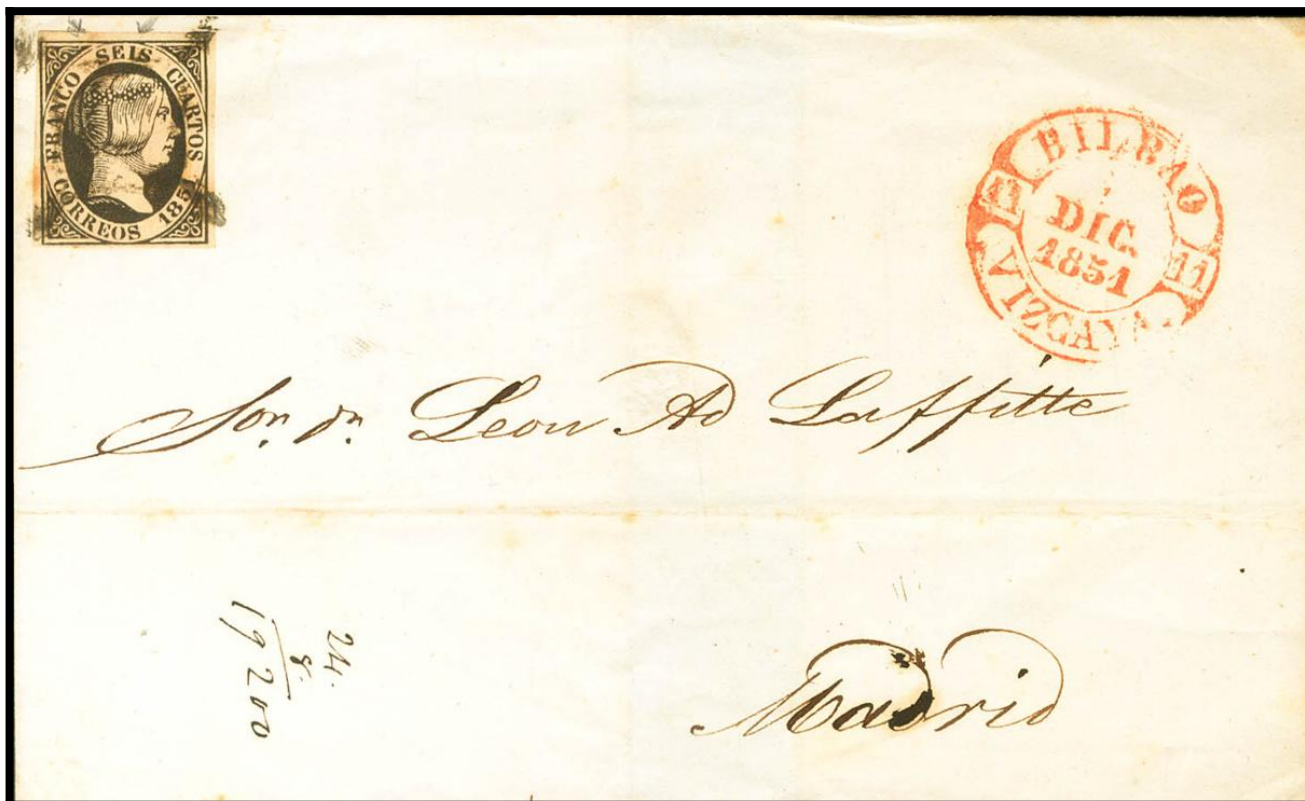 FRANCO SEIS CUARTOS
CORREOS 1851
BILBAO
11 DIC. 11
1851
VIZCAYA.
Sor. Dn. Leon Ad Laffitte
Madrid
24.
8.
19200